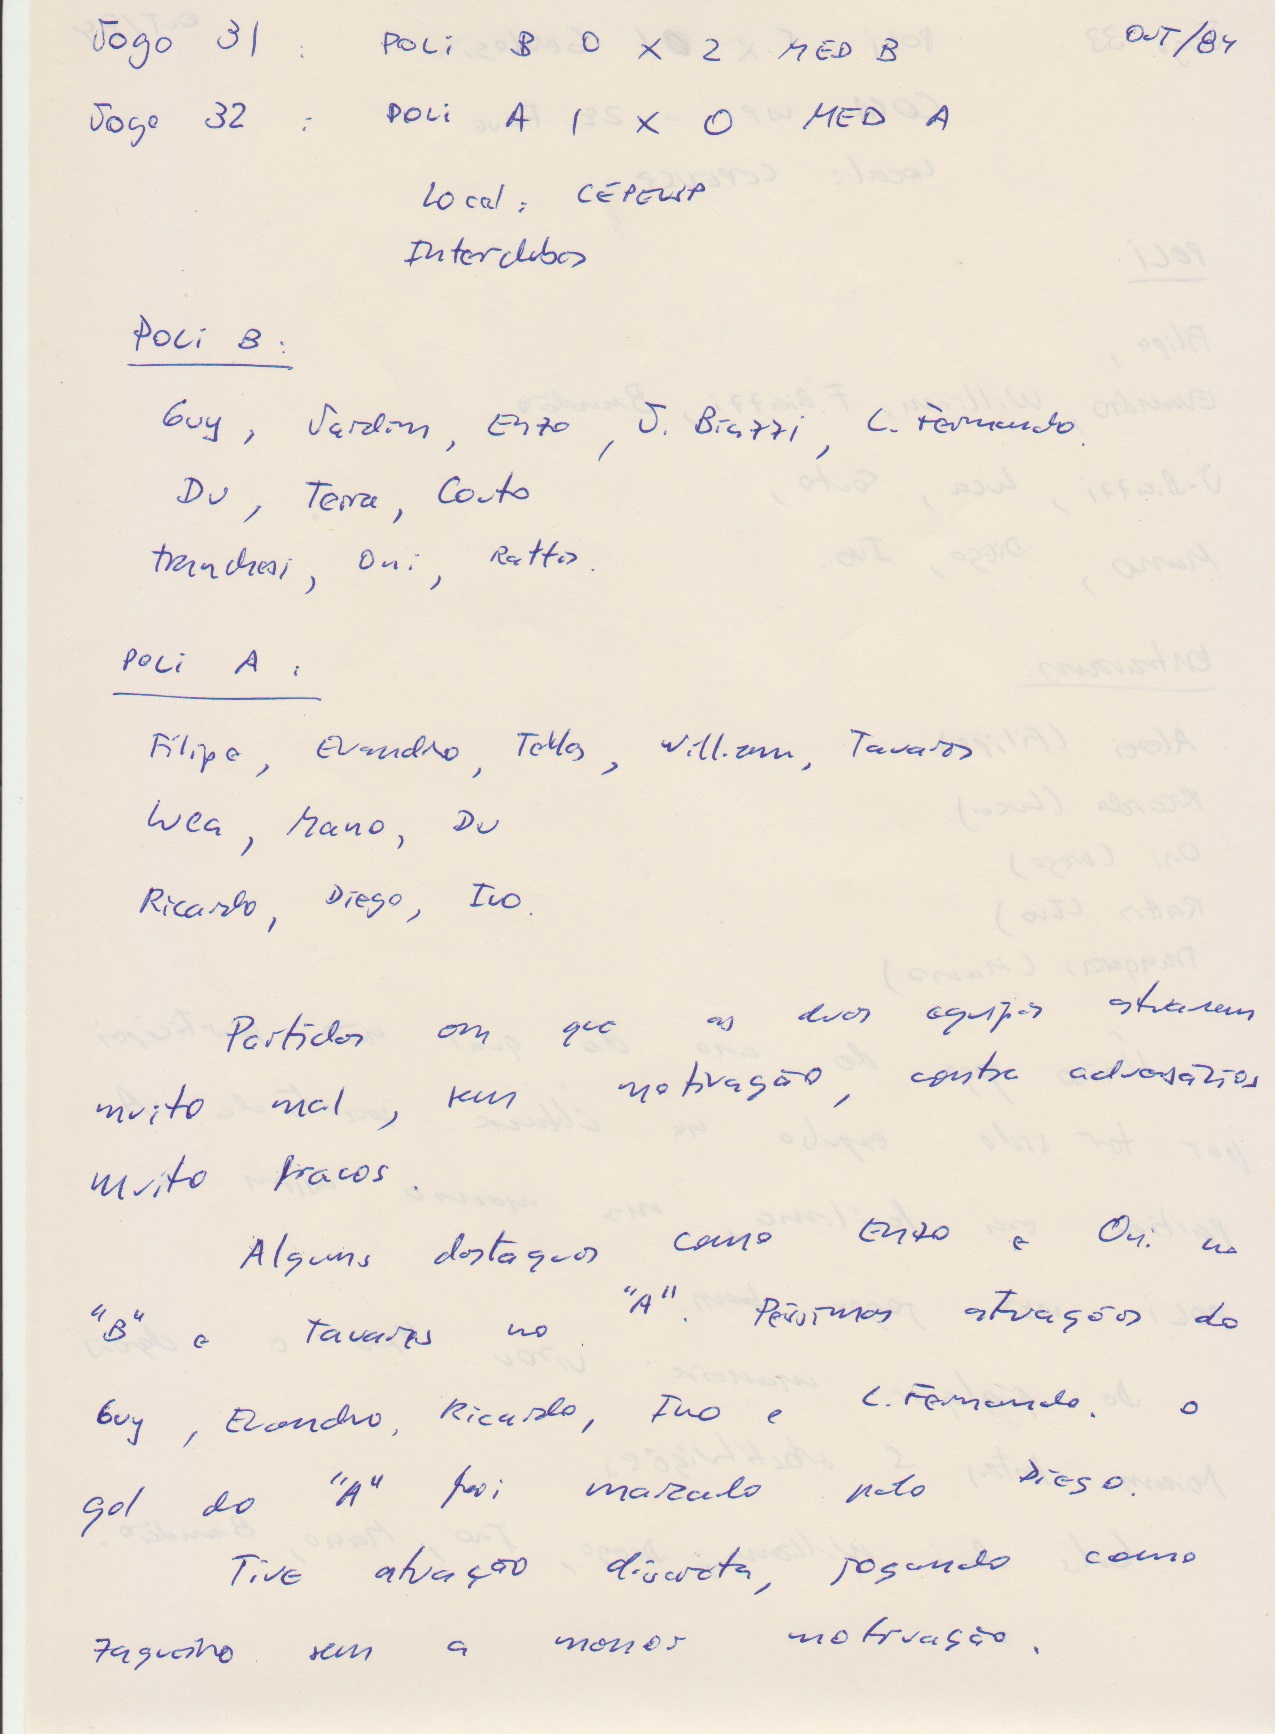 Jogo 31 : POLI B 0 X 2 MED B OUT/84
Jogo 32 : POLI A 1 X 0 MED A
Local: CEPEUSP
Interclubes
POLI B:
Guy, Jardim, Enzo, J. Biazzi, L. Fernando.
Du, Terra, Couto
Oni, Rattos.
POLI A:
Filipe, Evandro, Telles, William, Tavares
Luca, Mano, Du
Ricardo, Diego, Ivo.
Partidas em que as duas equipes atuaram
muito mal, sem motivação, contra adversários
muito fracos.
Alguns destaques como Enzo e Oni no
"B" e Tavares no "A". Péssimas atuações do
Guy, Evandro, Ricardo, Ivo e L. Fernando. O
gol do "A" foi marcado pelo Diego.
Tive atuação discreta, jogando como
zagueiro sem a menor motivação.